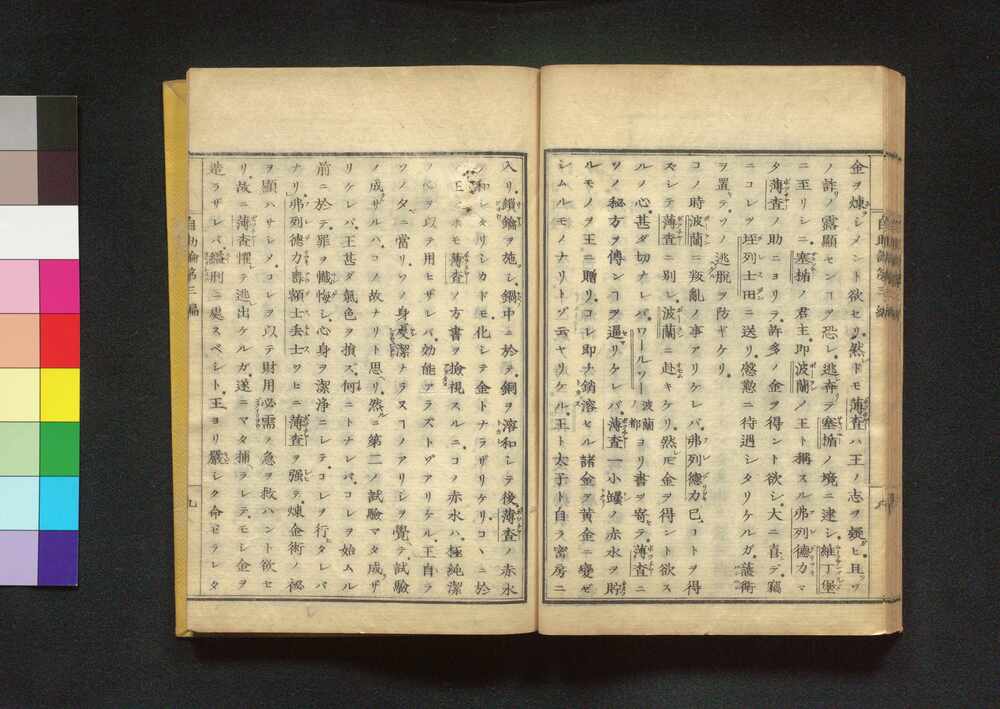 金ヲ煉シメント欲セリ然レドモ薄査ハ王ノ志ヲ疑ヒ且ツソ
ノ詐リノ露顯センコヲ恐レ逃奔テ塞掂ノ境ニ逮シ維丁堡
ニ至リシニ塞掂ノ君主即波蘭ノ王ト稱スル弗列德力マ
タ薄査ノ助ニヨリテ許多ノ金ヲ得ント欲シ大ニ喜デ竊
ニコレヲ垤列士田ニ送リ慇懃ニ待遇シタリケルガ護衛
ヲ置テソノ逃脱ヲ防ギケリ
コノ時波蘭ニ叛亂ノ事アリケレバ弗列德力已コトヲ得
ズシテ薄査ニ別レ波蘭ニ赴キケリ然レ𪜈金ヲ得ント欲ス
ルノ心甚ダ切ナレバワールソー波蘭ノ都ヨリ書ヲ寄テ薄査ニ
ソノ秘方ヲ傳ンコヲ逼リケレバ薄査一小罐ノ赤水ヲ貯
ルモノヲ王ニ贈リコレ即ナ銷溶セル諸金ヲ黄金ニ變ゼ
シムルモノナリトゾ云ヤリケル王ト太子ト自ラ密房ニ
自助論第三編
入リ鎖鑰ヲ施シ鍋中ニ於テ銅ヲ溶和シテ後薄査ノ赤水
ヲ和シタリシカドモ化シテ金トナラザリケリコヽニ於
王ホモ薄査ノ方書ヲ撿視スルニコノ赤水ハ極純潔
ノ以テ用ヒザレバ効能アラズトゾアリケル王自ラ
ソノタニ當リソノ身貞潔ナラヌヿノアリシヲ覺テ試驗
ノ成ザルハコノ故ナリト思リ然ルニ第二ノ試驗マタ成ザ
リケレバ王甚ダ氣色ヲ損ス何ニトナレバコレヲ始ムル
前ニ於テ罪ヲ懺悔シ心身ヲ潔淨ニシテコレヲ行タレバ
ナリ弗列德力壽額士丢士ツヒニ薄査ヲ強テ煉金術ノ秘
ヲ顯ハサシメコレヲ以テ財用必需ノ急ヲ救ハント欲セ
リ故ニ薄査懼テ逃出ケルガ遂ニマタ捕ラレテモシ金ヲ
造ラザレバ縊刑ニ處スベシト王ヨリ嚴シク命セラレタ
自助論第三編
九